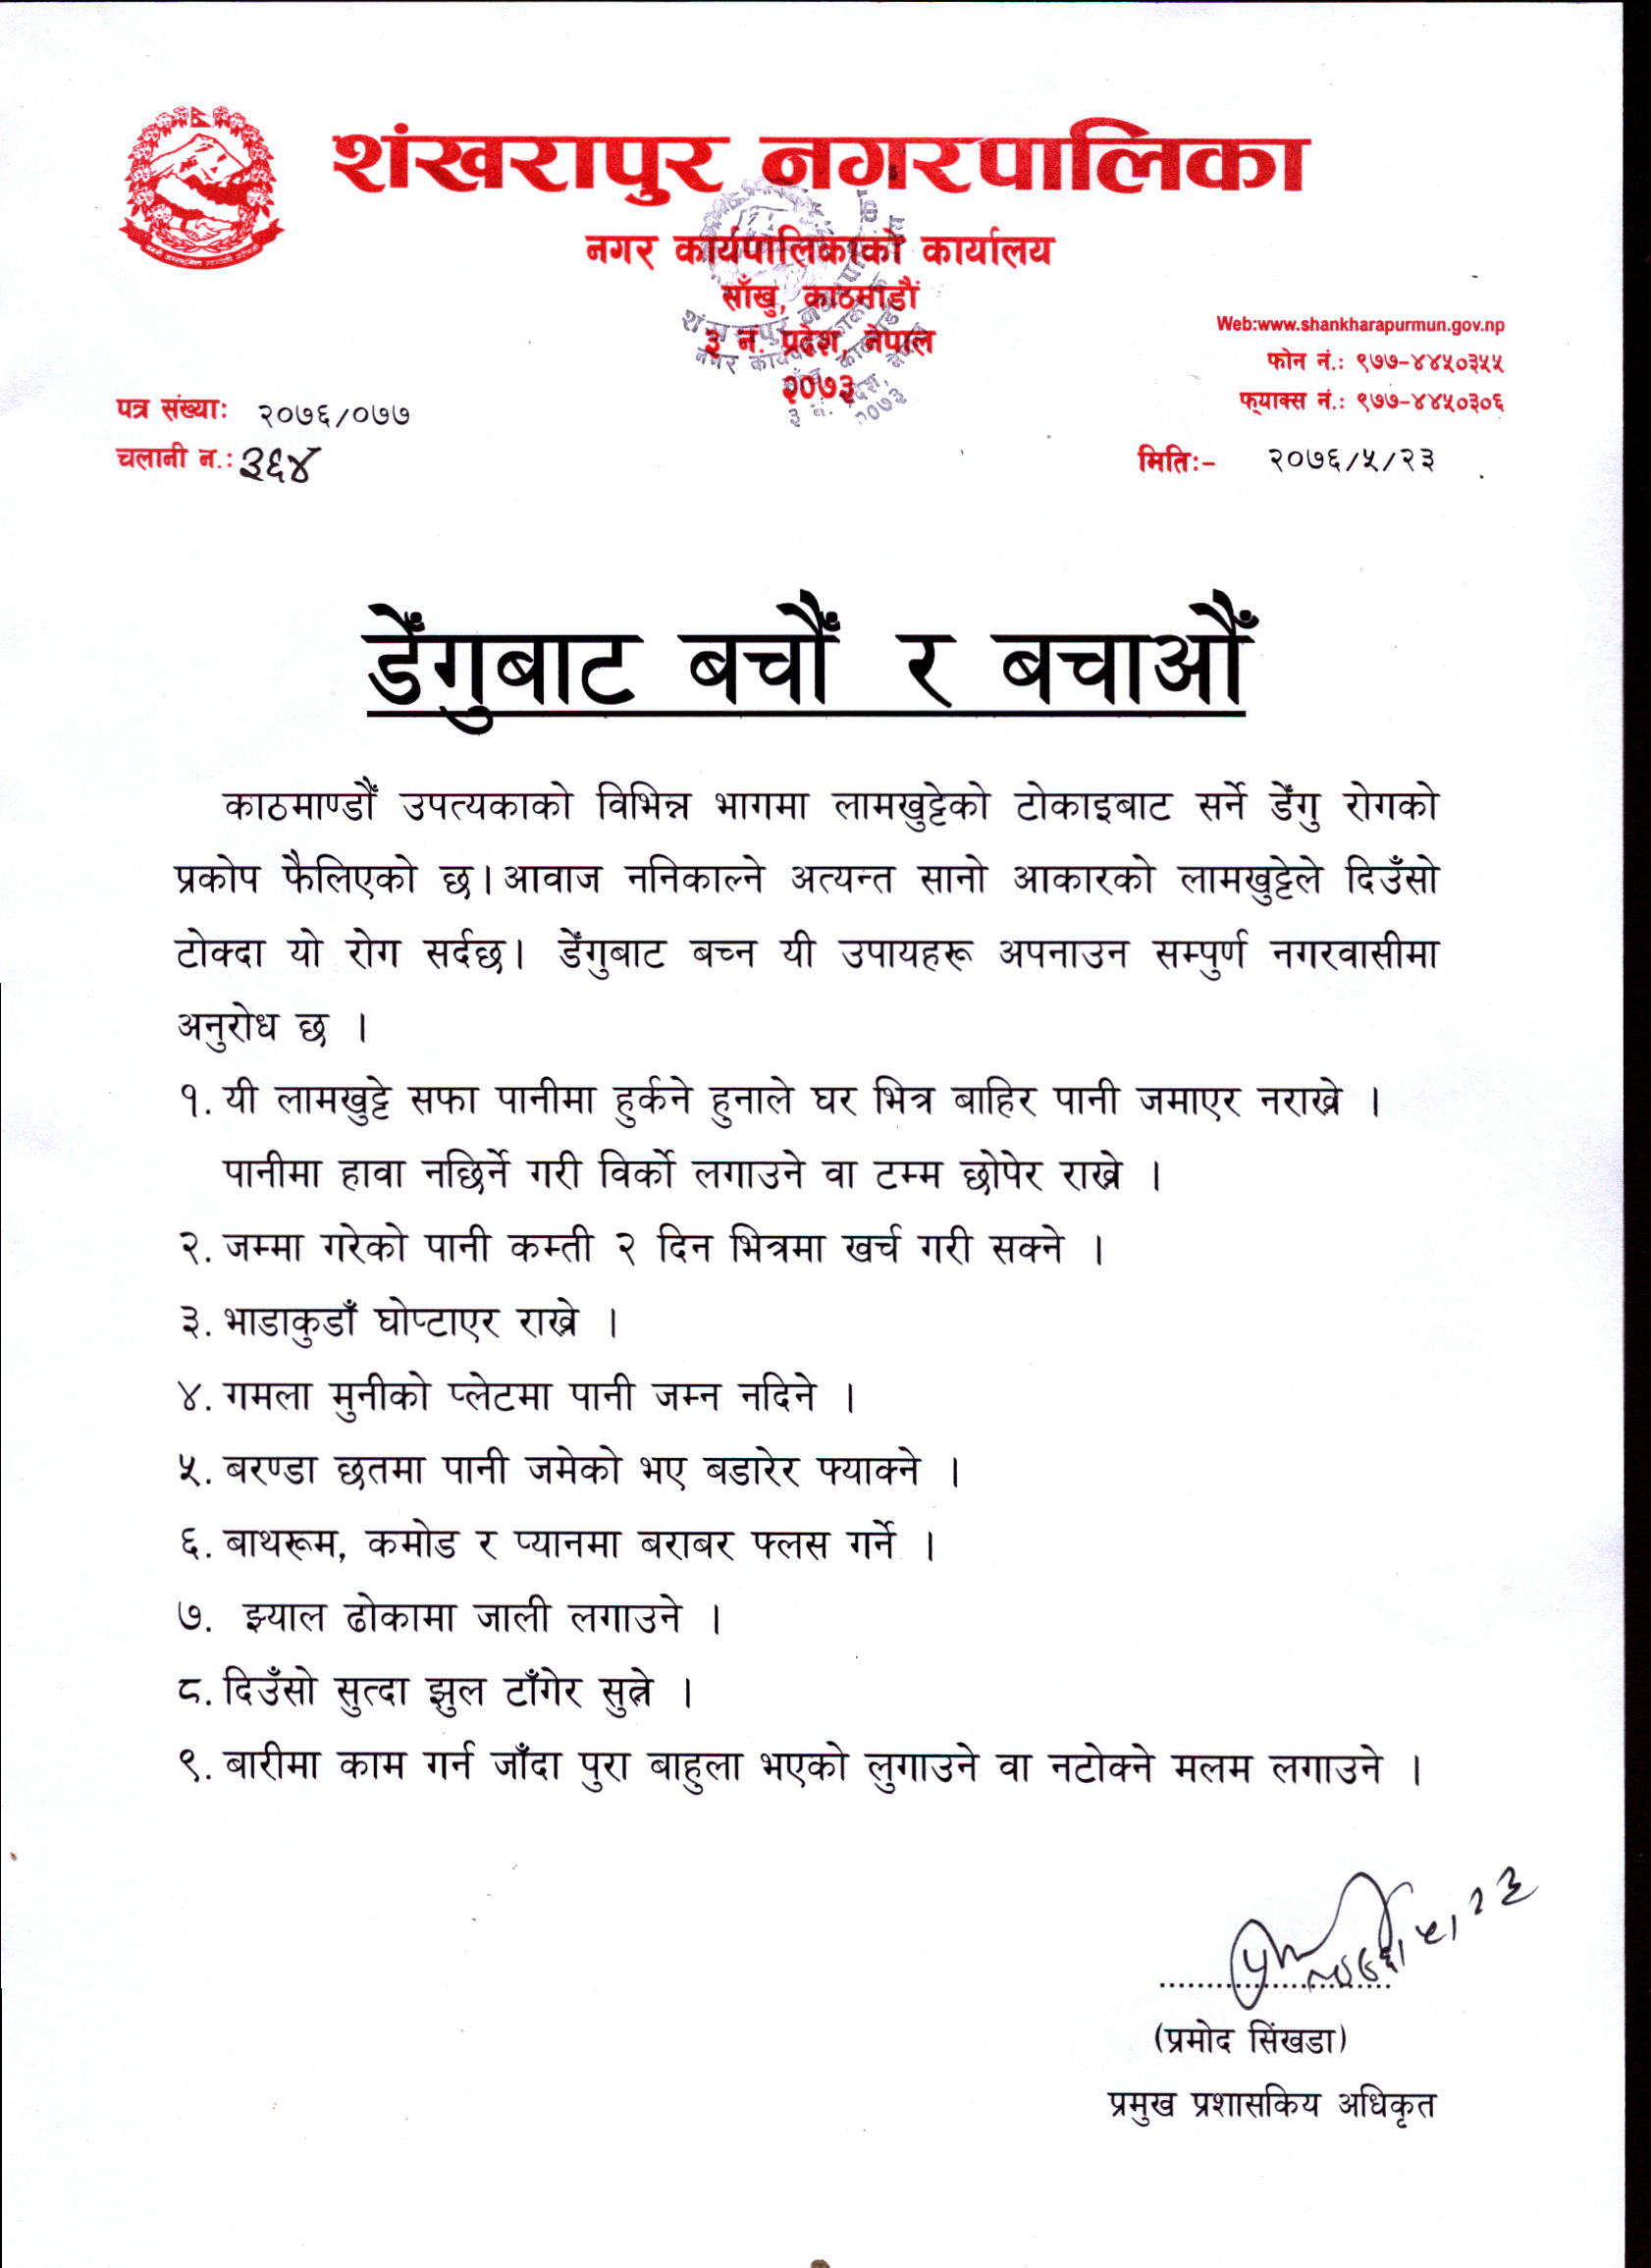 शंखरापुर नगरपालिका
नगर कार्यपालिकाको कार्यालय
साँखु, काठमाडौं
३ नं. प्रदेश, नेपाल
२०७३
Web:www.shankharapurmun.gov.np
फोन नं.: ९७७-४४५०३५५
फ्याक्स नं.: ९७७-४४५०३०६
पत्र संख्याः २०७६/०७७
चलानी न.: ३६४
मितिः- २०७६/५/२३
डेँगुबाट बचौँ र बचाऔँ
काठमाण्डौँ उपत्यकाको विभिन्न भागमा लामखुट्टेको टोकाइबाट सर्ने डेँगु रोगको
प्रकोप फैलिएको छ। आवाज ननिकाल्ने अत्यन्त सानो आकारको लामखुट्टेले दिउँसो
टोक्दा यो रोग सर्दछ। डेँगुबाट बच्न यी उपायहरू अपनाउन सम्पुर्ण नगरवासीमा
अनुरोध छ ।
१. यी लामखुट्टे सफा पानीमा हुर्कने हुनाले घर भित्र बाहिर पानी जमाएर नराख्ने ।
पानीमा हावा नछिर्ने गरी विर्को लगाउने वा टम्म छोपेर राख्ने ।
२. जम्मा गरेको पानी कम्ती २ दिन भित्रमा खर्च गरी सक्ने ।
३. भाडाकुडाँ घोप्टाएर राख्ने ।
४. गमला मुनीको प्लेटमा पानी जम्न नदिने ।
५. बरण्डा छतमा पानी जमेको भए बडारेर फ्याक्ने ।
६. बाथरूम, कमोड र प्यानमा बराबर फ्लस गर्ने ।
७. झ्याल ढोकामा जाली लगाउने ।
८. दिउँसो सुत्दा झुल टाँगेर सुत्ने ।
९. बारीमा काम गर्न जाँदा पुरा बाहुला भएको लुगाउने वा नटोक्ने मलम लगाउने ।
२०७६।५।२३
(प्रमोद सिंखडा)
प्रमुख प्रशासकिय अधिकृत